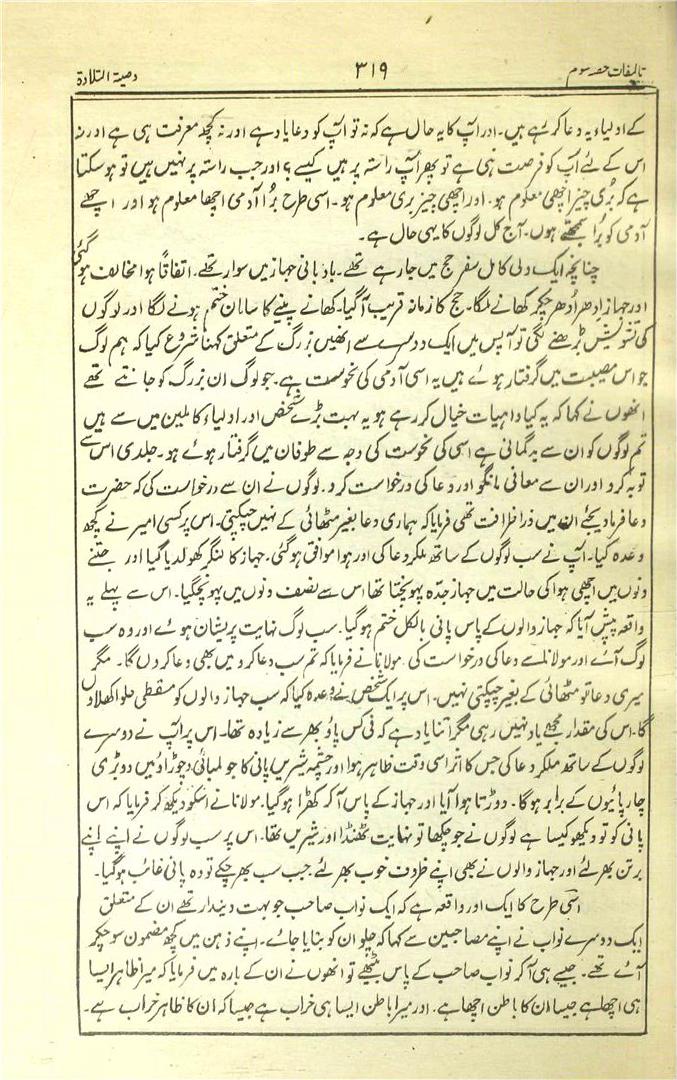 تالیفات حصہ سوم ۳۱۹ وصیۃ التلاوۃ
کے اولیاء یہ دعا کر رہے ہیں۔ اور آپ کا یہ حال ہے کہ نہ تو آپ کو دعا یاد ہے اور نہ کچھ معرفت ہی ہے اور نہ
اس کے لئے آپ کو فرصت ہی ہے تو پھر آپ راستہ پر ہیں کیسے؟ اور جب راستہ پر نہیں ہیں تو ہوسکتا
ہے کہ بُری چیز اچھی معلوم ہو۔ اور اچھی چیز بری معلوم ہو۔ اسی طرح برُا آدمی اچھا معلوم ہو اور اچھے
آدمی کو برُا سمجھتے ہوں۔ آج کل لوگوں کا یہی حال ہے۔
چنانچہ ایک ولی کامل سفر حج میں جارہے تھے۔ بادبانی جہاز میں سوار تھے۔ اتفاقًا ہوا مخالف ہوگئی
اور جہاز اِدھر اُدھر چکر کھانے لگا۔ حج کا زمانہ قریب آگیا۔ کھانے پینے کا سامان ختم ہونے لگا اور لوگوں
کی تشویش بڑھنے لگی تو آپس میں ایک دوسرے سے انھیں بزرگ کے متعلق کہنا شروع کیا کہ ہم لوگ
جو اس مصیبت میں گرفتار ہوئے ہیں یہ اسی آدمی کی نحوست ہے۔ جو لوگ ان بزرگ کو جانتے تھے
انھوں نے کہا کہ یہ کیا واہیات خیال کر رہے ہو یہ بہت بڑے شخص اور اولیاء کاملین میں سے ہیں
تم لوگوں کو ان سے بدگمانی ہے اسی کی نحوست کی وجہ سے طوفان میں گرفتار ہوئے ہو۔ جلدی اس سے
توبہ کرو اور ان سے معافی مانگو اور دعا کی درخواست کرو۔ لوگوں نے ان سے درخواست کی کہ حضرت
دعا فرما دیجئے ان میں ذرا ظرافت تھی فرمایا کہ ہماری دعا بغیر مٹھائی کے نہیں چپکتی۔ اس پر کسی امیر نے کچھ
وعدہ کیا۔ آپ نے سب لوگوں کے ساتھ ملکر دعا کی اور ہوا موافق ہوگئی۔ جہاز کا لنگر کھولدیا گیا اور جتنے
دنوں میں اچھی ہوا کی حالت میں جہاز جدّہ پہونچتا تھا اس سے نصف دنوں میں پہونچگیا۔ اس سے پہلے یہ
واقعہ پیش آیا کہ جہاز والوں کے پاس پانی بالکل ختم ہوگیا۔ سب لوگ نہایت پریشان ہوئے اور وہ سب
لوگ آئے اور مولانا سے دعا کی درخواست کی۔ مولانا نے فرمایا کہ تم سب دعا کرو میں بھی دعا کروں گا۔ مگر
میری دعا تو مٹھائی کے بغیر چپکتی نہیں۔ اس پر ایک شخص نے وعدہ کیا کہ سب جہاز والوں کو مسقطی حلوا کھلاؤں
گا۔ اس کی مقدار مجھے یاد نہیں رہی مگر اتنا یاد ہے کہ فی کس پاؤ بھر سے زیادہ تھا۔ اس پر آپ نے دوسرے
لوگوں کے ساتھ ملکر دعا کی جس کا اثر اسی وقت ظاہر ہوا اور چشمہ شیریں پانی کا جو لمبائی و چوڑاؤ میں دو بڑی
چارپائیوں کے برابر ہوگا۔ دوڑتا ہوا آیا اور جہاز کے پاس آکر کھڑا ہوگیا۔ مولانا نے اسکو دیکھ کر فرمایا کہ اس
پانی کو تو دیکھو کیسا ہے لوگوں نے جو چکھا تو نہایت ٹھنڈا اور شیریں تھا۔ اس پر سب لوگوں نے اپنے اپنے
برتن بھرلئے اور جہاز والوں نے بھی اپنے ظروف خوب بھرلئے۔ جب سب بھر چکے تو وہ پانی غائب ہوگیا۔
اسی طرح کا ایک اور واقعہ ہے کہ ایک نواب صاحب جو بہت دیندار تھے ان کے متعلق
ایک دوسرے نواب نے اپنے مصاحبین سے کہا کہ چلو ان کو بنایا جائے۔ اپنے ذہن میں کچھ مضمون سوچکر
آئے تھے۔ جیسے ہی آکر نواب صاحب کے پاس بیٹھے تو انھوں نے ان کے بارہ میں فرمایا کہ میرا ظاہر ایسا
ہی اچھا ہے جیسا ان کا باطن اچھا ہے۔ اور میرا باطن ایسا ہی خراب ہے جیسا کہ ان کا ظاہر خراب ہے۔